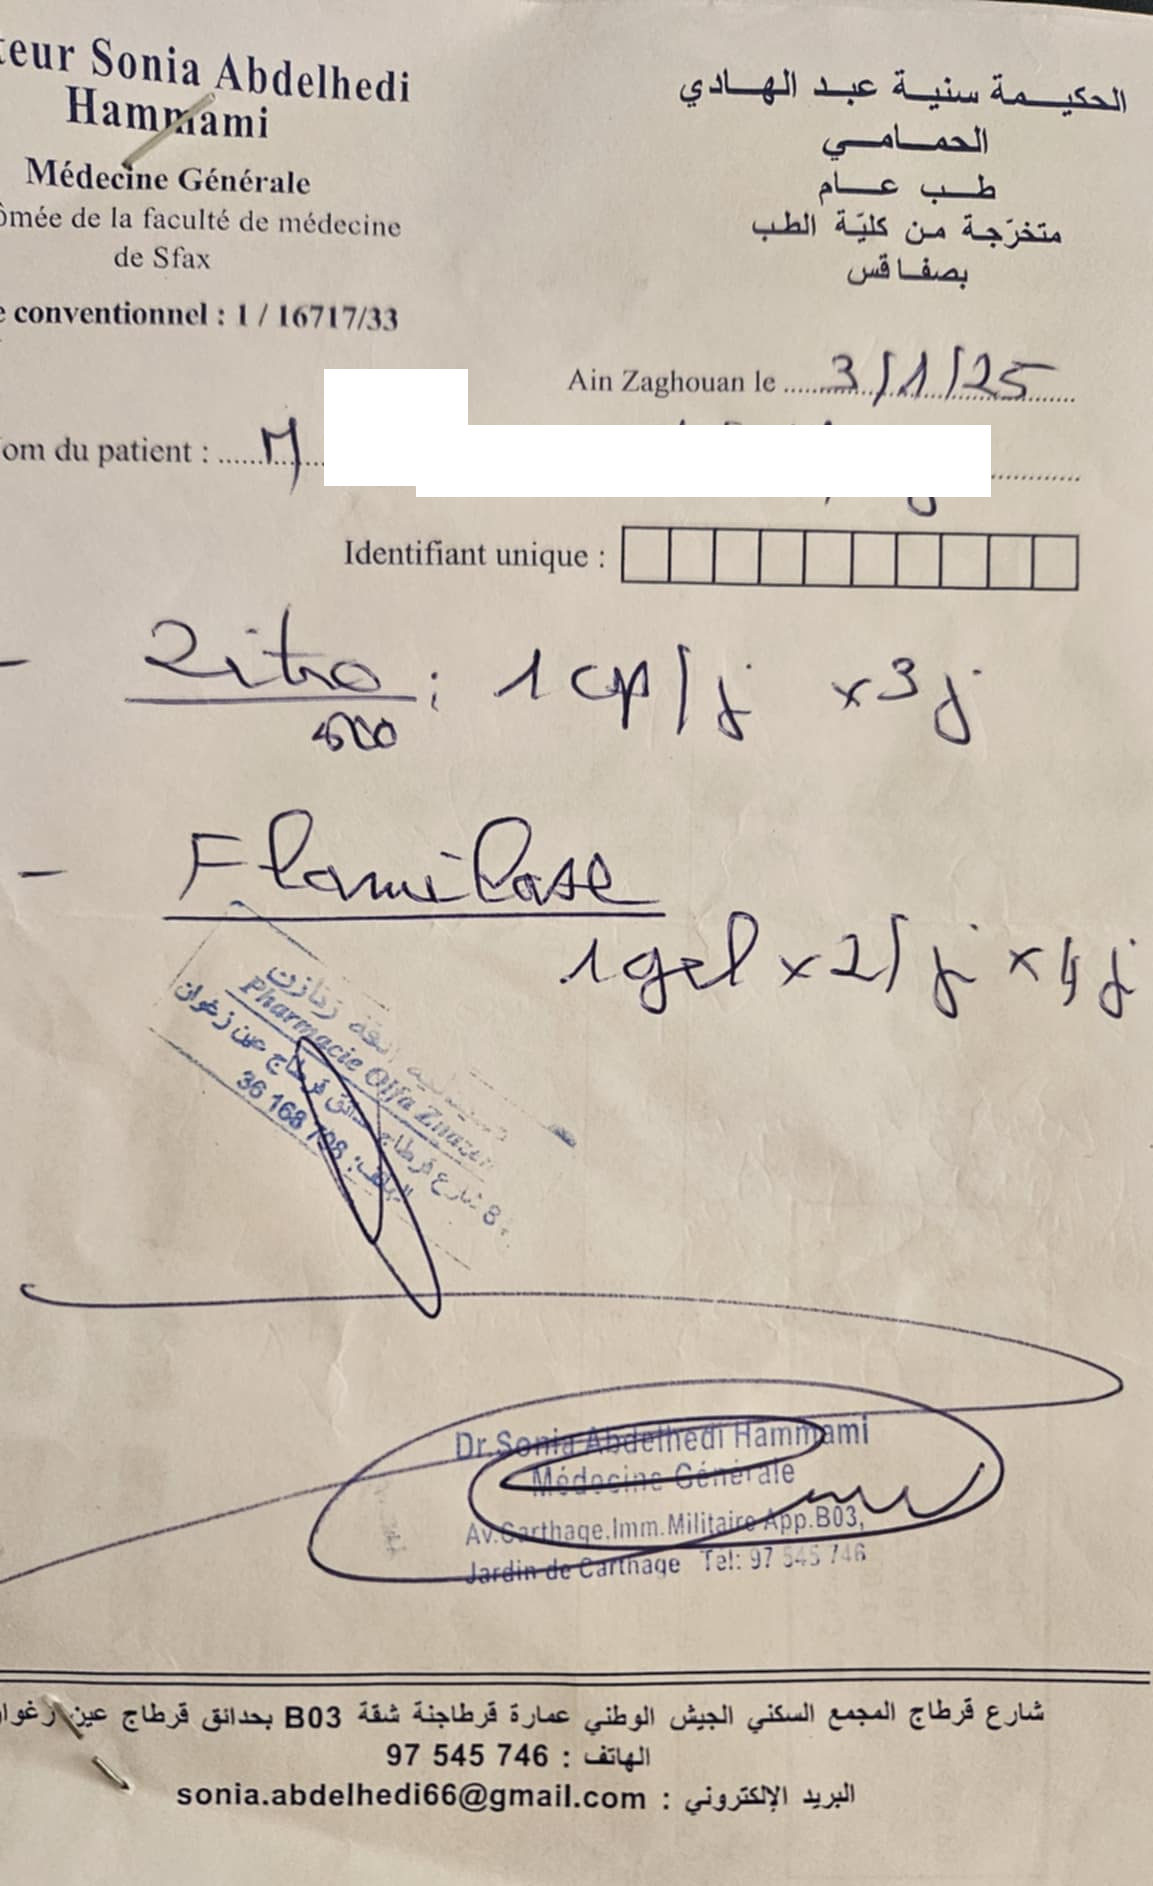 teur Sonia Abdelhedi
Hammami
Médecine Générale
ômée de la faculté de médecine
de Sfax
e conventionnel : 1 / 16717/33
الحكيمة سنية عبد الهادي
الحمامي
طب عام
متخرّجة من كليّة الطب
بصفاقس
Ain Zaghouan le 3/1/25
om du patient : M
Identifiant unique :
- Zitro : 1 cp/j x 3 j
500
- Flamilase
1 gel x 2/j x 4 j
Pharmacie Olfa Znazen
8 شارع قرطاج حدائق قرطاج عين زغوان
الهاتف: 36 168 798
Dr.Sonia Abdelhedi Hammami
Médecine Générale
Av.Carthage.Imm.Militaire App.B03,
Jardin de Carthage Tel: 97 545 746
شارع قرطاج المجمع السكني الجيش الوطني عمارة قرطاجنة شقة B03 بحدائق قرطاج عين زغوا
الهاتف : 97 545 746
البريد الإلكتروني : sonia.abdelhedi66@gmail.com